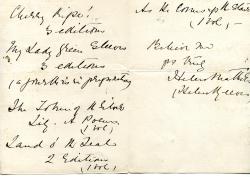 Cherry Ripe!
3 editions
My Lady Green Sleeves
3 editions
(a fourth is in preparing
The Token of the Silver
Lily. A Poem
(1 vol)
Land o' the Leal
2 Edition
(1 vol)
As He Comes up the Stair
(1 vol)
Believe me
yrs truly
Helen Mathers
(Helen Reeves)